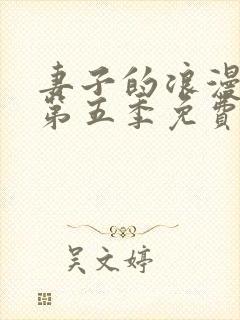 妻子的浪漫
第五季免費
吴文婷